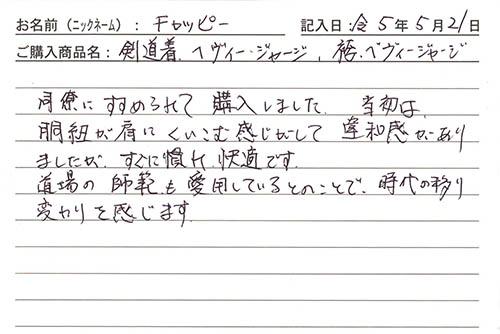 お名前（ニックネーム）：キャッピー 記入日：令5年5月21日
ご購入商品名：剣道着.ヘヴィージャージ，袴.ヘヴィージャージ
同僚にすすめられて購入しました. 当初は,
胴紐が肩にくいこむ感じがして違和感があり
ましたが、すぐに慣れ快適です.
道場の師範も愛用しているとのことで、時代の移り
変わりを感じます.